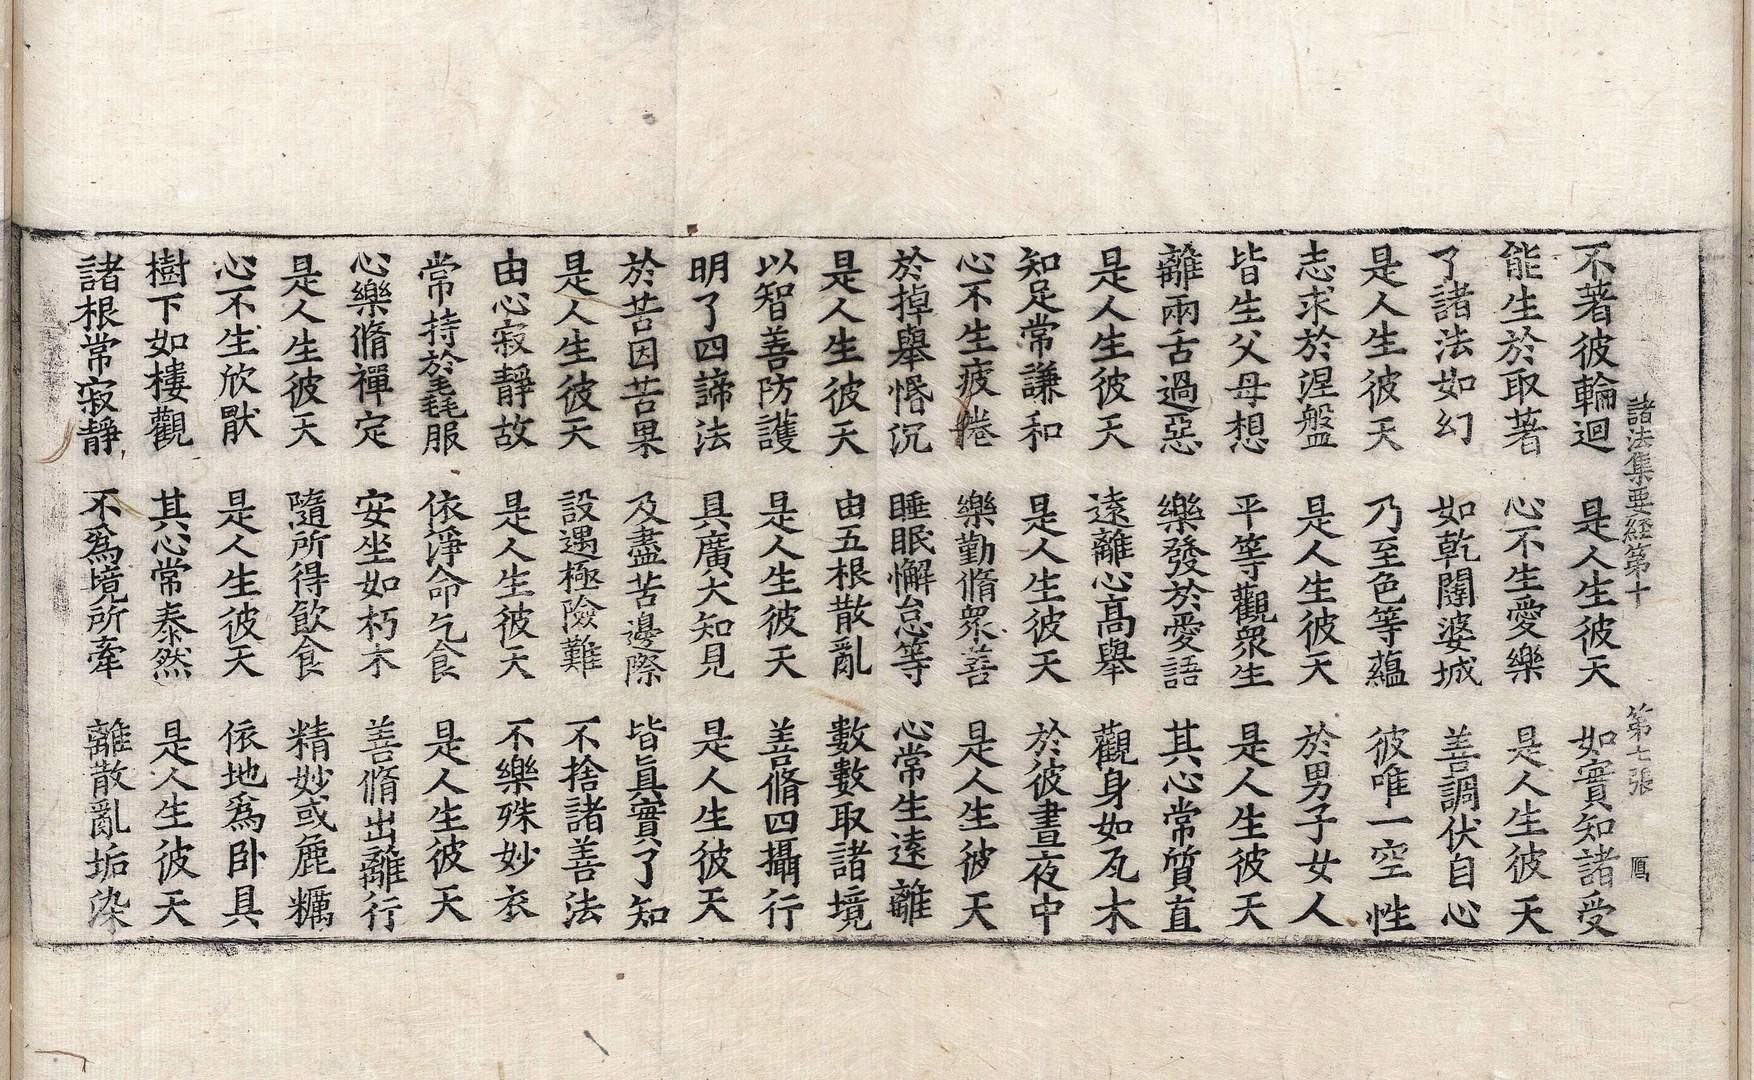 諸法集要經第十 第七張 鳳
不著彼輪迴 是人生彼天 如實知諸受
能生於取著 心不生愛樂 是人生彼天
了諸法如幻 如乾闥婆城 善調伏自心
是人生彼天 乃至色等蘊 彼唯一空性
志求於涅盤 是人生彼天 於男子女人
皆生父母想 平等觀衆生 是人生彼天
離兩舌過惡 樂發於愛語 其心常質直
是人生彼天 遠離心高舉 觀身如瓦木
知足常謙和 是人生彼天 於彼晝夜中
心不生疲倦 樂勤脩衆善 是人生彼天
於掉舉惛沉 睡眠懈怠等 心常生遠離
是人生彼天 由五根散亂 數數取諸境
以智善防護 是人生彼天 善脩四攝行
明了四諦法 具廣大知見 是人生彼天
於苦因苦果 及盡苦邊際 皆眞實了知
是人生彼天 設遇極險難 不捨諸善法
由心寂靜故 是人生彼天 不樂殊妙衣
常持於毳服 依淨命乞食 是人生彼天
心樂脩禪定 安坐如朽木 善脩出離行
是人生彼天 隨所得飲食 精妙或麁糲
心不生欣猒 是人生彼天 依地爲卧具
樹下如樓觀 其心常泰然 是人生彼天
諸根常寂靜 不爲境所牽 離散亂垢染